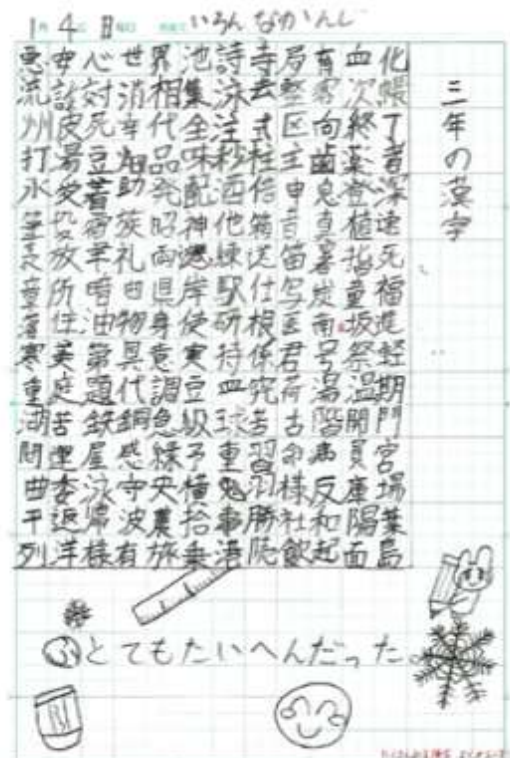 1月4日 曜日 いろんなかんじ
三年の漢字
化帳丁者深速死福進軽期門宮場葉島
血次終薬登植指童坂祭温開員庫陽面
育客向歯息真暑炭南号湯階病反和起
局整区主申昔笛写医君荷古命様社飲
寺去式柱倍箱送仕根係究苦習羽勝院
詩泳注秒酒他練駅研持皿球重鬼事港
池集全味配神悪岸使実豆級予横拾乗
界相代品発昭両退身意調急緑央農旅
世消幸助族礼由物具代銅感守波有
心対死豆着宿羊暗油第題鉄屋泳帰様
安皮湯受投放所住美庭苦運委返洋
悪流州打水筆表章落寒重湖問曲平列
とてもたいへんだった。